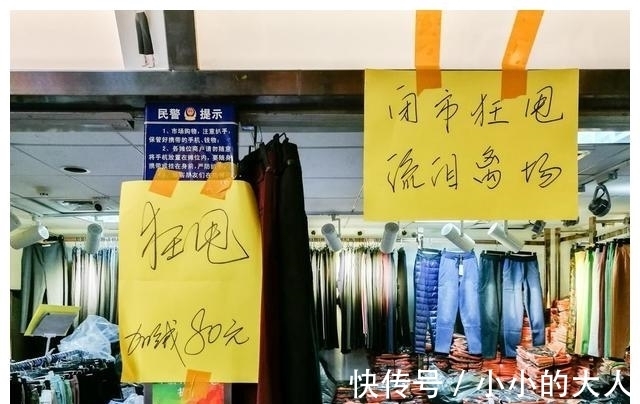 民警 提示
1、市场购物，注意扒手，
保管好携带的手机、钱物；
2、各摊位商户请勿随意
将手机放置在摊位内，要随身
携带或挂在身前，严防
客朋友们在
闭市狂甩
流泪离场
狂甩
加绒80元
快传号／小小的大人